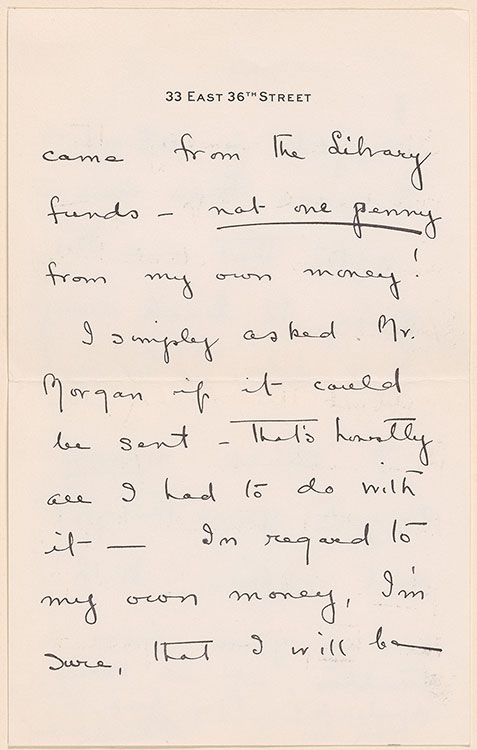 33 EAST 36TH STREET
came from the Library
funds – not one penny
from my own money!
I simply asked Mr.
Morgan if it could
be sent – That's honestly
all I had to do with
it — In regard to
my own money, I'm
sure, that I will be